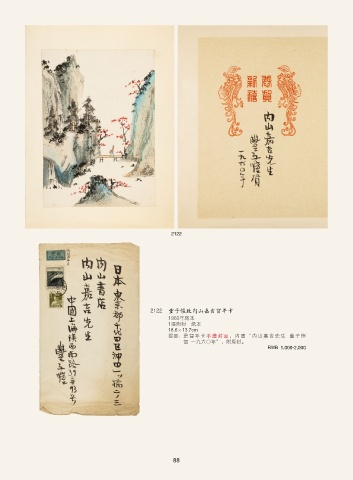 恭賀
新禧
内山嘉吉先生
豐子愷賀
一九六〇年
2122
日本東京都千代田区神田一ツ橋二ノ三
内山書店
内山嘉吉先生
中國上海陝西南路39弄93号
豐子愷
2122 豐子愷致内山嘉吉賀年卡
1960年紙本
1張附封 紙本
18.6×13.7cm
內書“内山嘉吉先生 豐子愷賀 一九六〇年”，附原封。
RMB 1,000-2,000
88